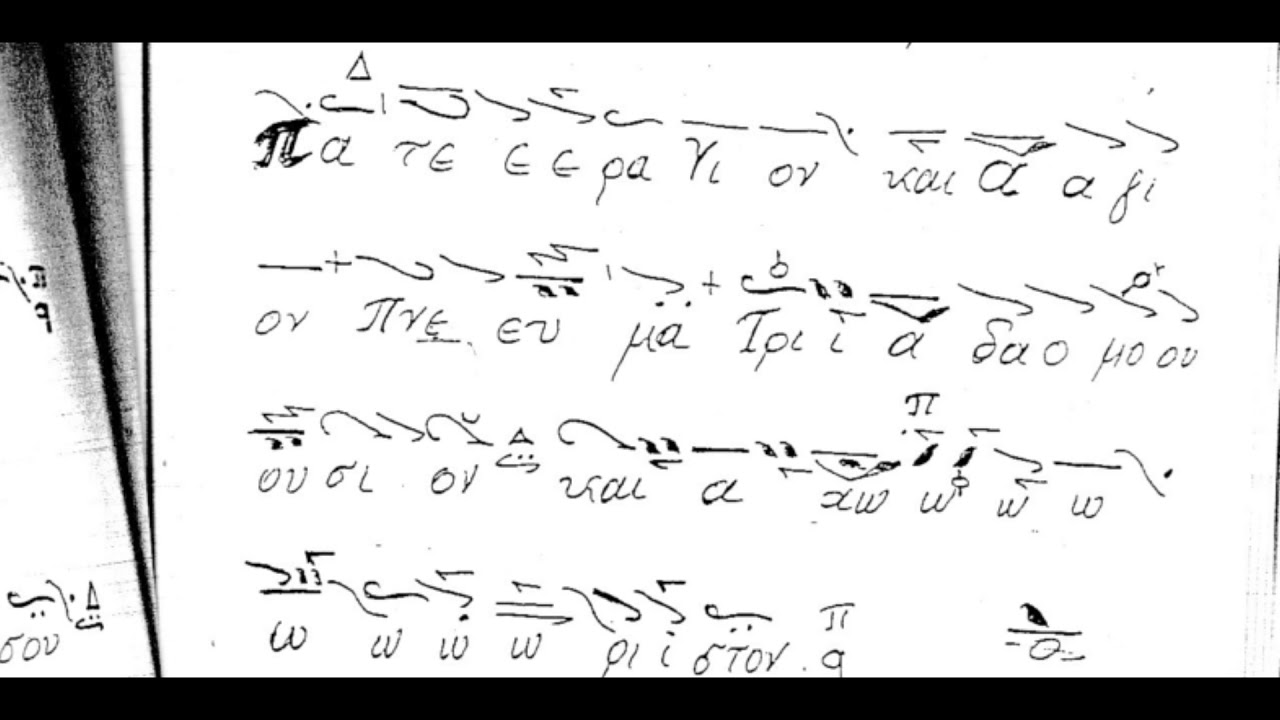 Δ
Πα τε ε ε ρα Υι ον και α α γι
ον Πνε ευ μα Τρι ι α δα ο μο ου
Π
ου σι ον Δ και α χω ω ω ω
ω ω ω ω ρι ι στον . Π q
Δ
σου
π
q